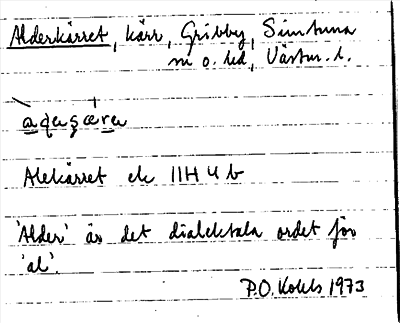 Alderkärret, kärr, Gribby, Simtuna
sn o. hd, Västm. l.
Alekärret ek 11H 4 b
'Alder' är det dialektala ordet för
'al'.
P.O. 1973